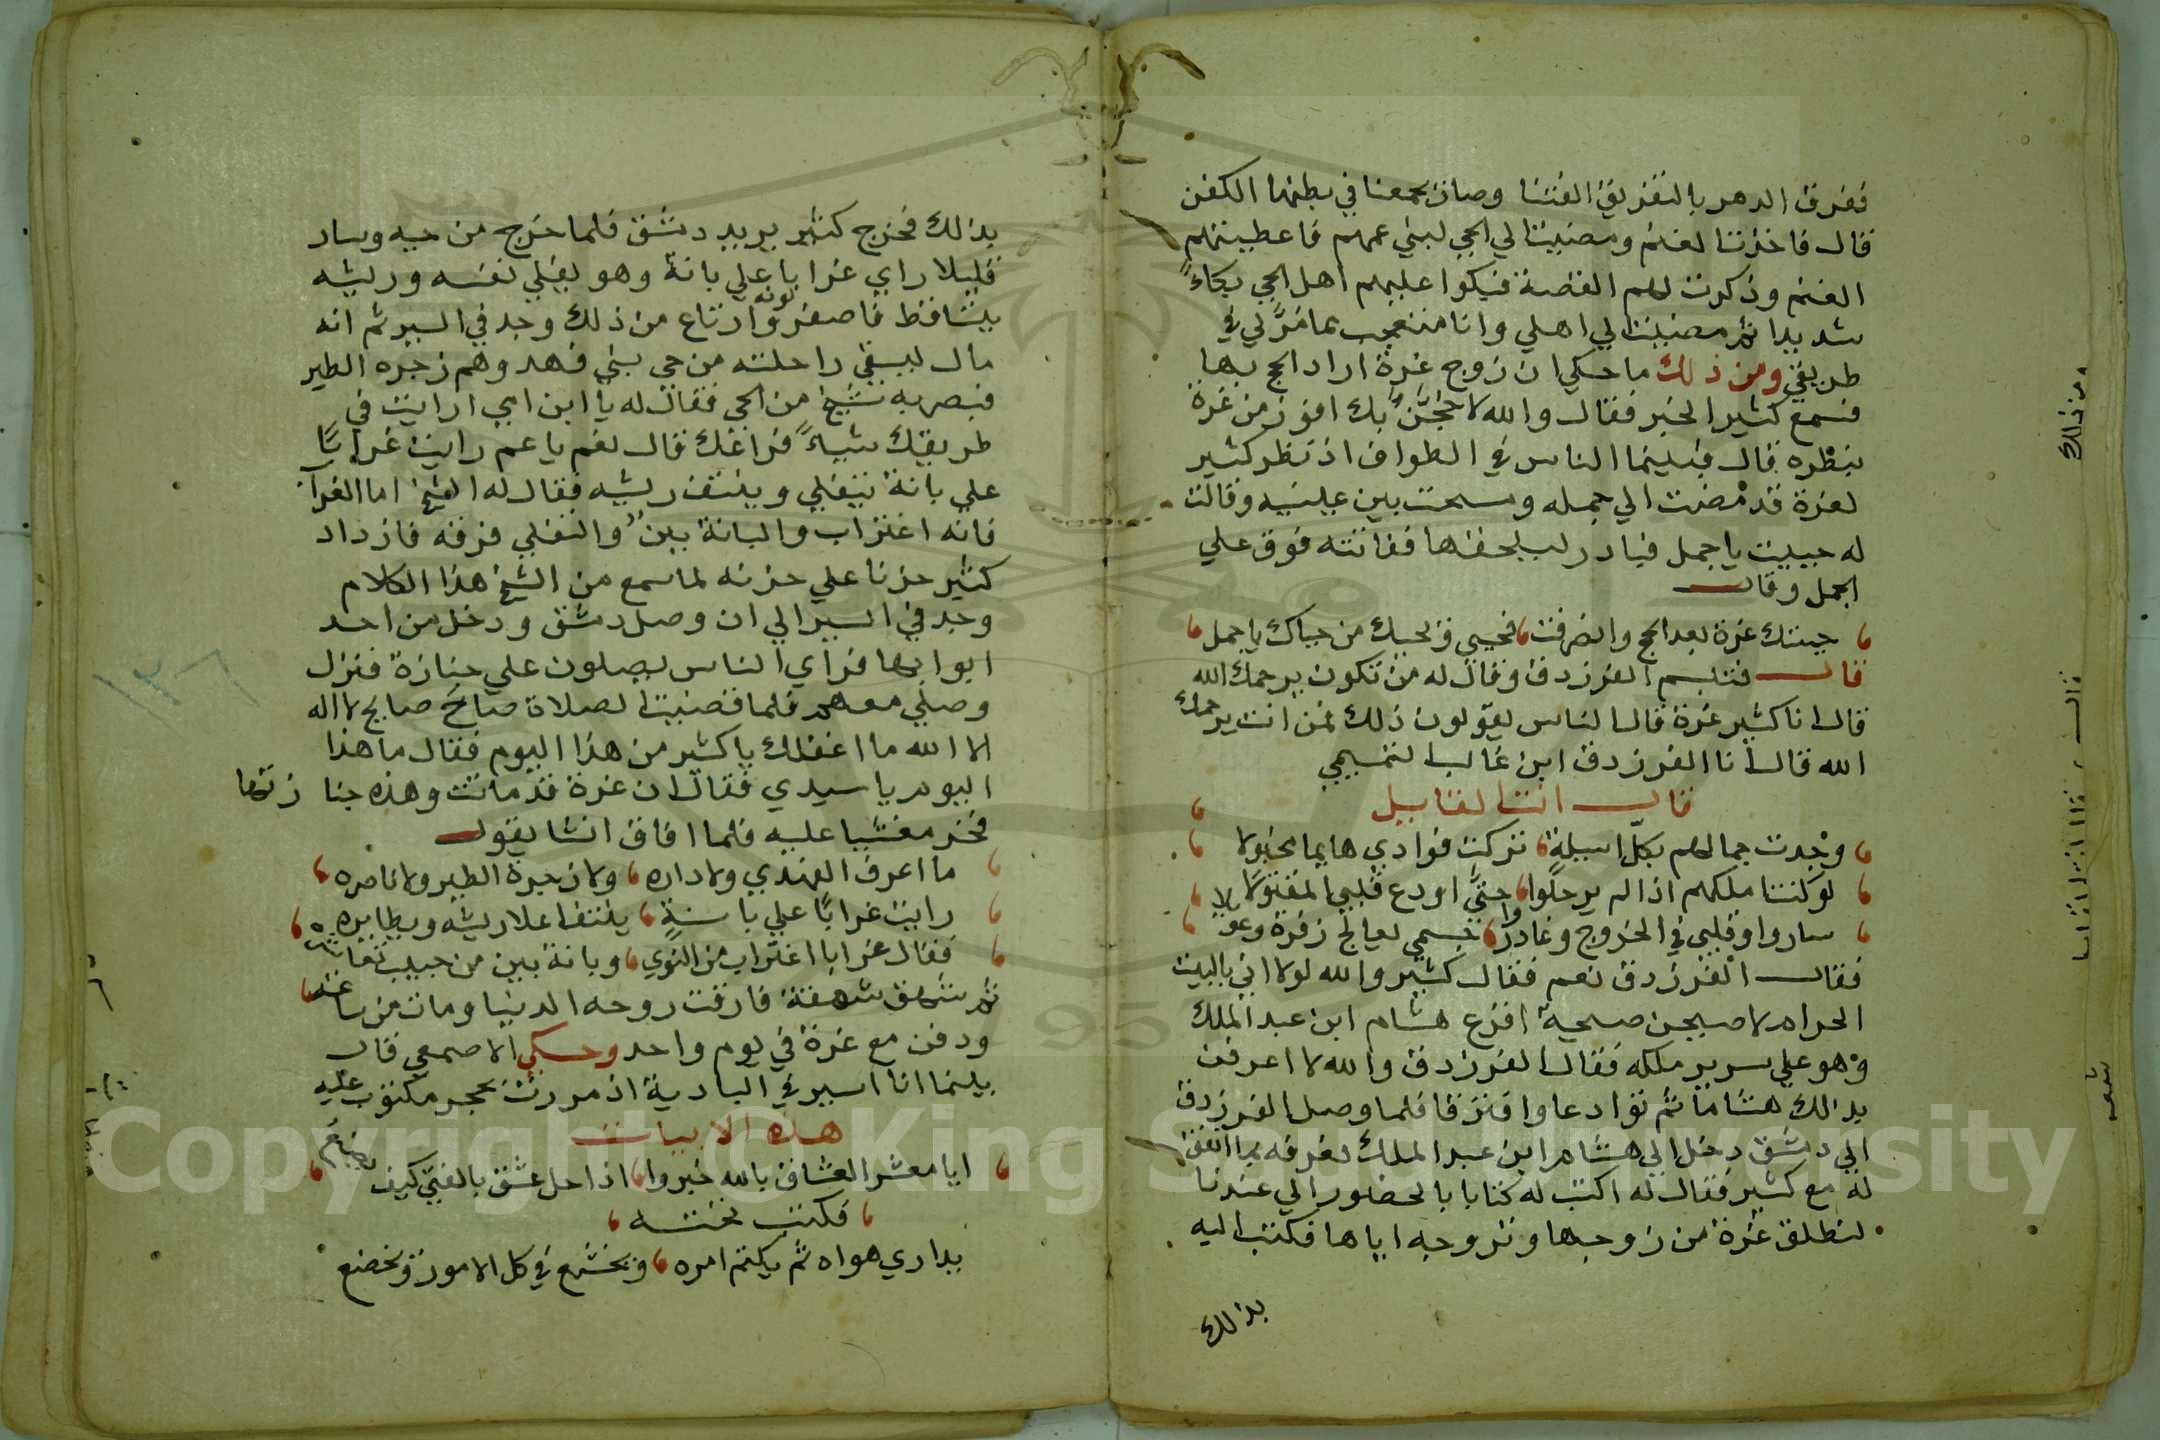 ففرق الدهر بالتفريق الفتنا وصار يجمعنا في بطنها الكفن
قال فاخذت الغنم ومضيت الي الحي لبني عمهم فاعطيتهم
الغنم وذكرت لهم القصة فبكوا عليهم اهل الحي بكاءً
شديدا ثم مضيت الي اهلي وانا متعجب مما مرَّ لي في
طريقي ومن ذلك ما حكي ان زوج عزة اراد الحج بها
فسمع كثير الخبر فقال والله لاحجَّنَّ بك افوز من عزة
بنظره قال فبينما الناس في الطواف اذ نظر كثير
لعزة قد مضت الي جمله ومسحت بين عينيه وقالت
له حييت يا جمل فبادر ليلحقها ففاتته فوقف علي
الجمل وقال
حيتك عزة بعد الحج وانصرفت فحيي ويحك من حياك يا جمل
قال فتبسم الفرزدق وقال له من تكون يرحمك الله
قال انا كثير عزة قال الناس يقولون ذلك فمن انت يرحمك
الله قال انا الفرزدق ابن غالب التميمي
قال انت القايل
وجدت جمالهم بكلّ اسيلةٍ تركت فوادي هايما مخبولا
لو كنت املكهم اذا لم يرحلوا حتىَّ اودع قلبي المقتولا
ساروا وقلبي في الخروج وغادروا جسمي يعالج زفرة وعويلا
فقال الفرزدق نعم فقال كثير والله لولا اني بالبيت
الحرام لاصيحن صيحة افزع هشام ابن عبد الملك
وهو علي سرير ملكه فقال الفرزدق والله لاعرفن
بذالك هشاما ثم توادعا وافترقا فلما وصل الفرزدق
الي دمشق دخل الي هشام ابن عبد الملك يعرفه بما اتفق
له مع كثير فقال له اكتب له كتابا بالحضور الي عندنا
لنطلق عزة من زوجها ونزوجه اياها فكتب اليه
بذلك
ومن ذلك
شعر
بذالك فخرج كثير يريد دمشق فلما خرج من حيه وسار
قليلا راي غرابا علي بانة وهو يفلي نفسه وريشه
يتساقط فاصفر لونه وارتاع من ذلك وجد في السير ثم انه
مال ليسقي راحلته من حي بني فهد وهم زجرة الطير
فبصر به شيخ من الحي فقال له يا ابن اخي ارايت في
طريقك شيءً فراعك قال نعم يا عم رايت غرابًا
علي بانة يتفلي وينتف ريشه فقال له الشيخ اما الغراب
فانه اغتراب والبانة بينٌ والتفلي فرقه فازداد
كثير حزنا علي حزنه لما سمع من الشيخ هذا الكلام
وجد في السير الي ان وصل دمشق ودخل من احد
ابوابها فراي الناس يصلون علي جنازة فنزل
وصلي معهم فلما قضيت الصلاة صاح صايح لا اله
الا الله ما اغفلك يا كثير من هذا اليوم فقال ما هذا
اليوم يا سيدي فقال ان عزة قد ماتت وهذه جنازتها
فخر مغشيا عليه فلما افاق انشا يقول
ما اعرف النهدي ولا داره ولا زجرة الطير ولا ناصره
رايت غرابًا علي بانةٍ ينتف اعلا ريشه ويطايره
فقال غرابا اغتراب من النوي وبانة بين من حبيب تعاشره
ثم شهق شهقة فارقت روحه الدنيا ومات من ساعته
ودفن مع عزة في يوم واحد وحكي الاصمعي قال
بينما انا اسير في البادية اذ مررت بحجر مكتوب عليه
هذه الابيات
ايا معشر العشاق بالله خبروا اذا حل عشق بالفتي كيف يصنع
فكتب تحته
يداري هواه ثم يكتم امره ويخشع في كل الامور ويخضع